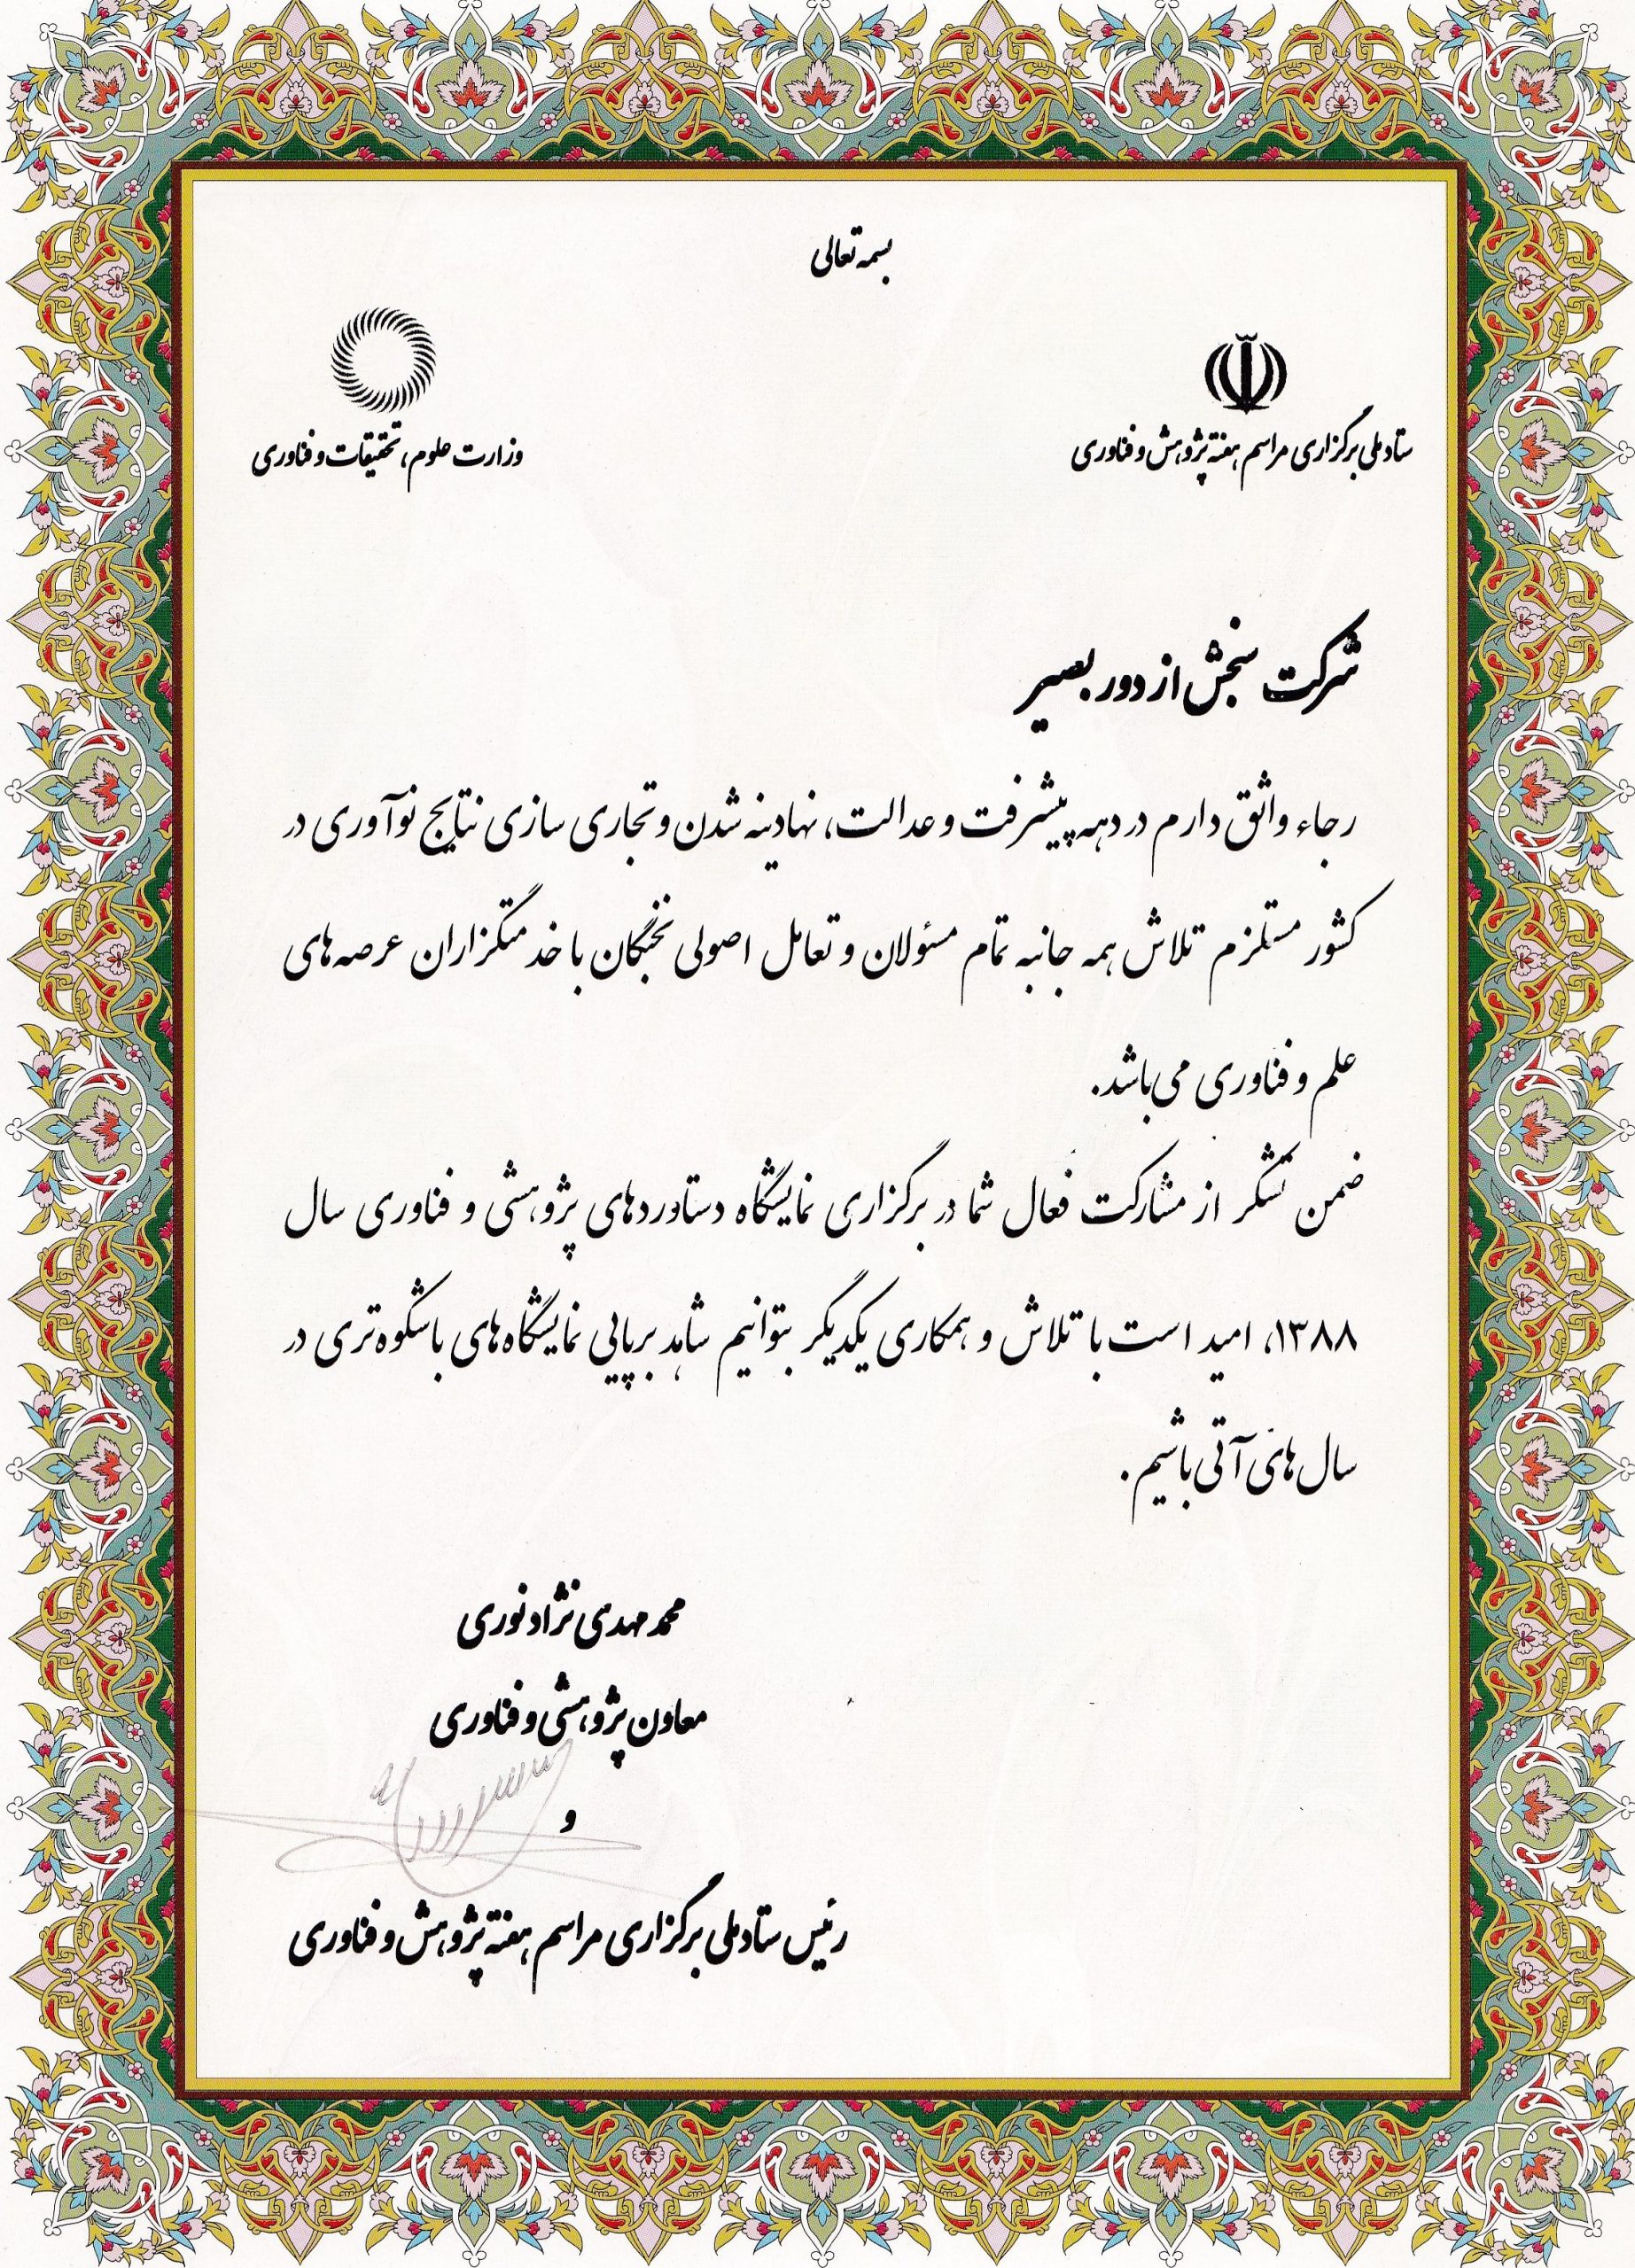 بسمه تعالی
ستاد ملی برگزاری مراسم هفته پژوهش و فناوری
وزارت علوم، تحقیقات و فناوری
شرکت سنجش از دور بصیر
رجاء واثق دارم در دهه پیشرفت و عدالت، نهادینه شدن و تجاری سازی نتایج نوآوری در
کشور مستلزم تلاش همه جانبه تمام مسئولان و تعامل اصولی نخبگان با خدمتگزاران عرصه های
علم و فناوری می باشد.
ضمن تشکر از مشارکت فعال شما در برگزاری نمایشگاه دستاوردهای پژوهشی و فناوری سال
۱۳۸۸، امید است با تلاش و همکاری یکدیگر بتوانیم شاهد برپایی نمایشگاه های باشکوه تری در
سال های آتی باشیم.
محمد مهدی نژاد نوری
معاون پژوهشی و فناوری
و
رئیس ستاد ملی برگزاری مراسم هفته پژوهش و فناوری